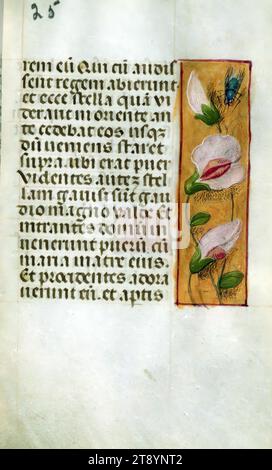 25
rem eū Qui cū audis
sent regem abierunt
et ecce stella quā vi
derant in oriente an
te cedebat eos usq;
dū veniens staret
supra ubi erat puer
videntes autez stel
lam gavisi sūt gau
dio magno valde Et
intrantes domū in
venerunt puerū cū
maria matre eius.
Et procidentes adora
verunt eū. et aptis
alamy
2B7NYNT